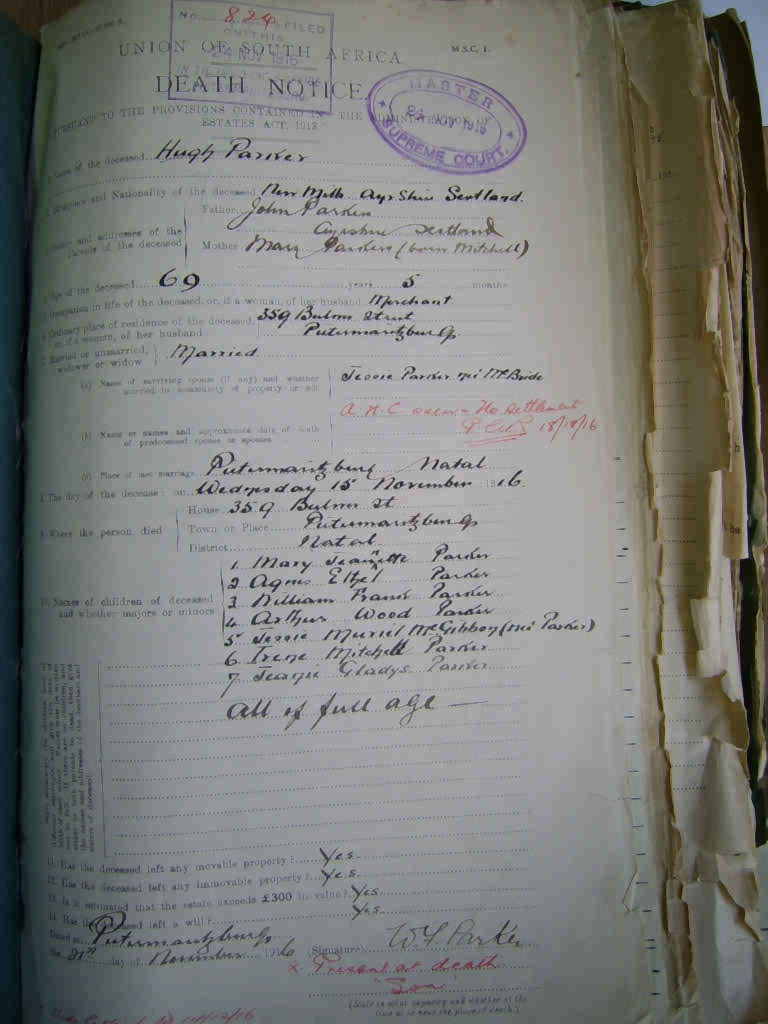 No. 824 FILED
ON THIS
24 NOV 1916
UNION OF SOUTH AFRICA
M.S.C. 1.
DEATH NOTICE.
MASTER
24 NOV 1916
SUPREME COURT.
PURSUANT TO THE PROVISIONS CONTAINED IN THE ADMINISTRATION OF
ESTATES ACT, 1913.
Name of the deceased Hugh Parker
Birthplace and Nationality of the deceased New Mills Ayrshire Scotland.
Names and addresses of the parents of the deceased
Father John Parker
Ayrshire Scotland
Mother Mary Parker (born Mitchell)
Age of the deceased 69 years 5 months
Occupation in life of the deceased, or, if a woman, of her husband Merchant
Ordinary place of residence of the deceased, or, if a woman, of her husband 359 Bulwer Street
Pietermaritzburg
Married or unmarried, widower or widow Married
(a) Name of surviving spouse (if any) and whether married in community of property or not
Jessie Parker née McBride
(b) Name or names and approximate date of death of predeceased spouse or spouses
A.N.C. No settlement
18/12/16
(c) Place of last marriage Pietermaritzburg Natal
8. The day of the decease: on Wednesday 15 November 1916.
9. Where the person died
House 359 Bulwer St
Town or Place Pietermaritzburg
District Natal
10. Names of children of deceased and whether majors or minors
1. Mary Jeanette Parker
2. Agnes Ethel Parker
3 William Frank Parker
4 Arthur Wood Parker
5 Jessie Muriel McGibbon (née Parker)
6 Irene Mitchell Parker
7 Jeanie Gladys Parker
All of full age —
11. Has the deceased left any movable property? Yes.
12. Has the deceased left any immovable property? Yes.
13. Is it estimated that the estate exceeds £300 in value? Yes
14. Has the deceased left a will? Yes.
Dated at Pietermaritzburg
the 21st day of November 1916
(Signature) W F Parker
& Present at death
"Son"
(State in what capacity and whether at the time at or near the place of death.)